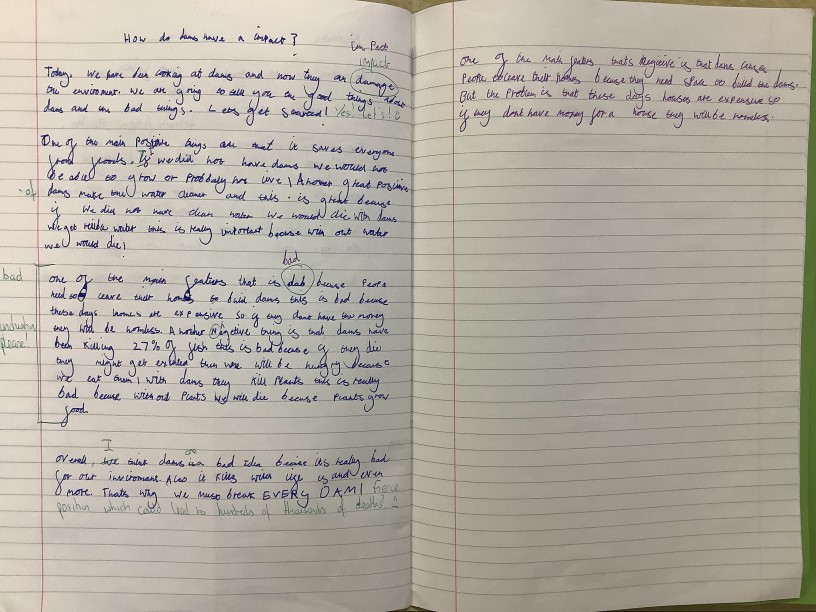 How do dams have a impact?
Im Pact
impact
Today, we have been looking at dams and now they are damage
the enviroment. we are going to tell you the good things about
dams and the bad things. Lets get started! Yes let's!
One of the main Positive things are that it saves everyone
from floods. If we did not have dams we would not
be able to grow or Probably not live! Another great Positive
- of
dams make the water cleaner and this is great because
if we did not have clean water we would die with dams
we get water this is really important because with out water
we would die!
bad
bad
one of the main featers that is dab becuse People
need to leave their homes to build dams this is bad becuse
these days homes are expensive so if they dont have the money
they will be homeless. Another Negetive thing is that dams have
please.
been killing 27% of fish this is bad becuse if they die
they might get extined then we will be hungry becuse
we eat them! with dams they kill Plants this is really
bad becuse without Plants we will die becuse Plants grow
food.
I
overall, we think dams is a bad idea becuse its really bad
for our inviroment. Also it kills wild life and even
more. Thats why we must break EVERY DAM! Fierce
position which could lead to hundreds of thousands of deaths!!
one of the main featers thats Negetive is that dams causes
People to leave their homes because they need space to build the dams.
But the Problem is that these days houses are expensive so
if they dont have money for a house they will be homeless.